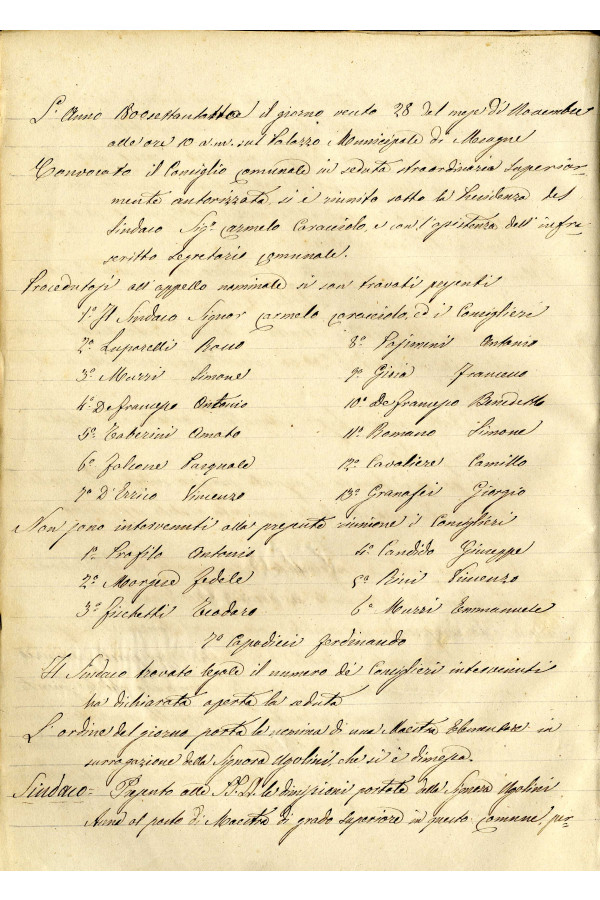 L'Anno 80esettantotto il giorno vento 28 del mese di Novembre
alle ore 10 a.m. sul Palazzo Municipale di Mesagne
Convocato il Consiglio Comunale in seduta straordinaria Superior-
mente autorizzata, si è riunito sotto la Presidenza del
Sindaco Sigr. Carmelo Caracciolo, e con l'assistenza dell'infra-
scritto Segretario Comunale.
Procedutosi all'appello nominale si son trovati presenti
1º Il Sindaco Signor Carmelo Caracciolo, ed i Consiglieri
2º Luparelli Rocco 8º Pasimini Antonio
3º Murri Simone 9º Gioia Francesco
4º Defrancesco Antonio 10º Defrancesco Benedetto
5º Taberini Amato 11º Romano Simone
6º Falcone Pasquale 12º Cavaliere Camillo
7º D'Errico Vincenzo 13º Granafei Giorgio
Non sono intervenuti alla presente riunione i Consiglieri
1º Profilo Antonio 4º Candido Giuseppe
2º Morgese Fedele 5º Rini Vincenzo
3º Fischetti Teodoro 6º Murri Emmanuele
7º Capodieci Ferdinando
Il Sindaco trovato legale il numero de' Consiglieri intervenuti
ha dichiarata aperta la seduta
L'ordine del giorno porta la nomina di una Maestra Elementare in
surrogazione della Signora Ugolini, che si è dimessa.
Sindaco = Presento alle SS.LL. le dimissioni portate dalla Signora Ugolini
Anna al posto di Maestra di grado Superiore in questo Comune, per-